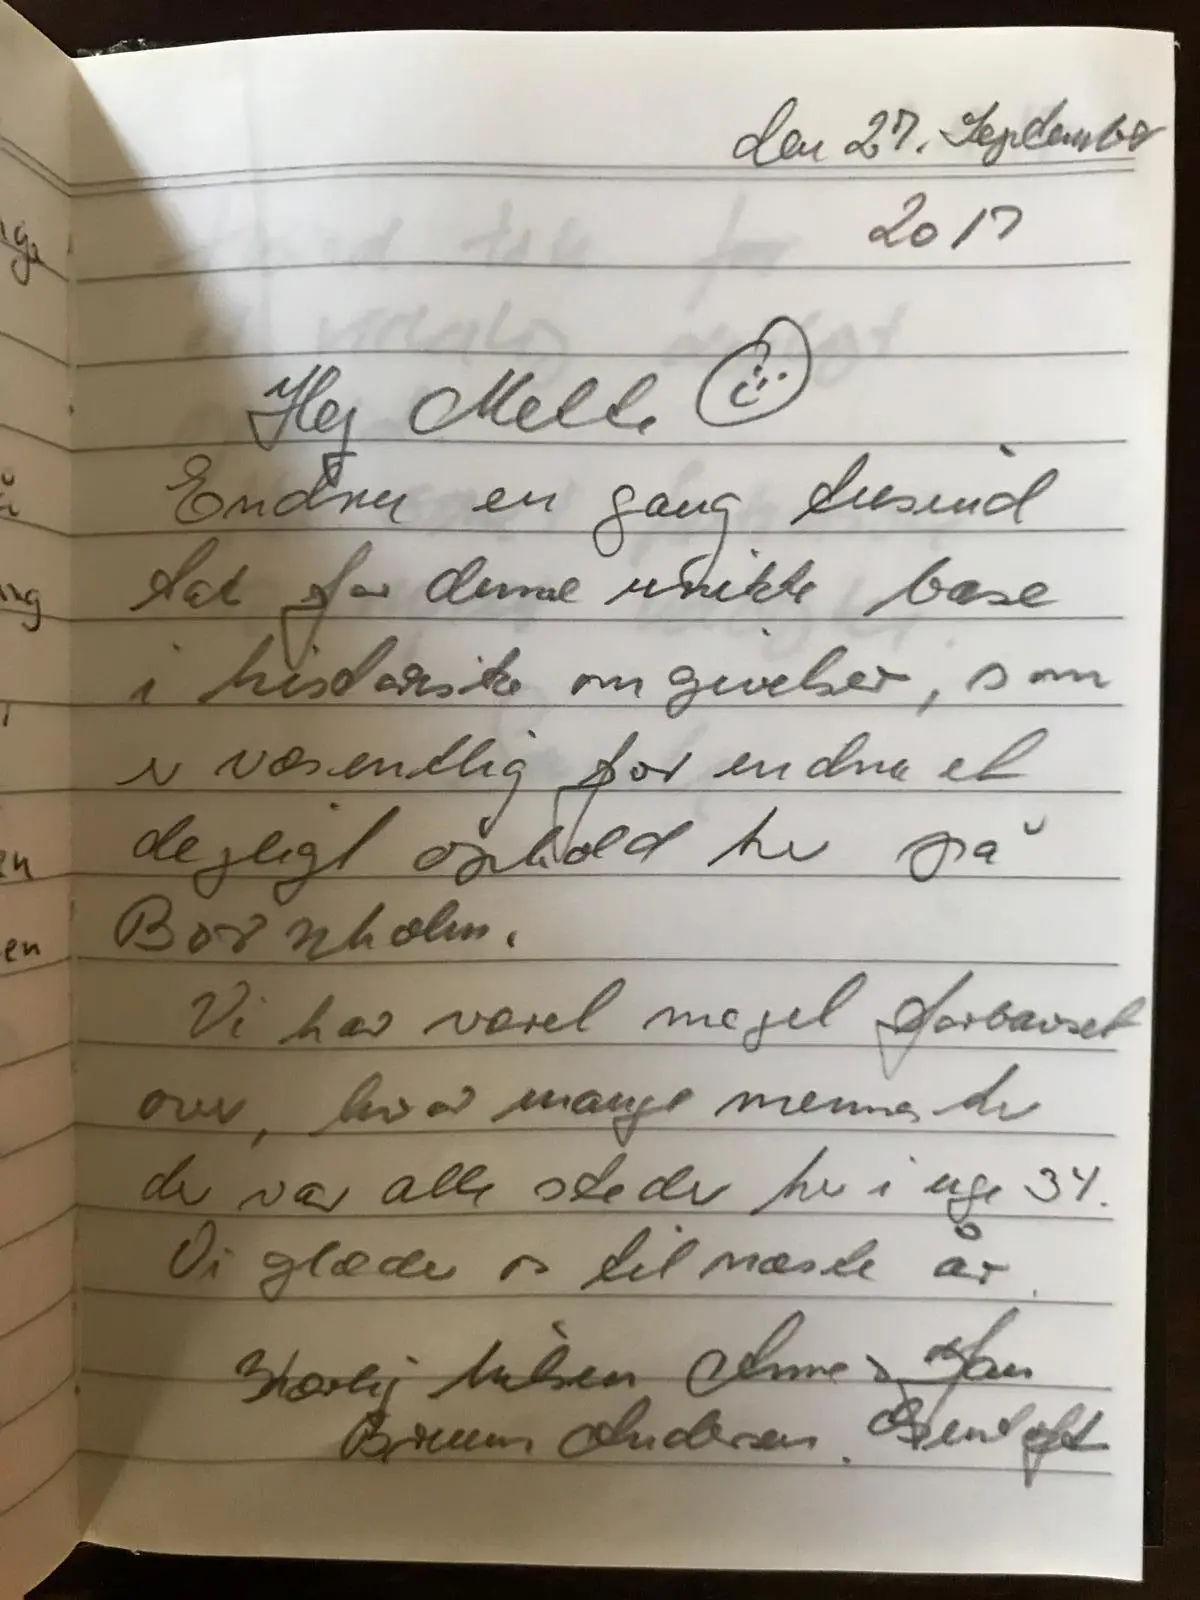 den 27. September
2017
Hej Mette
Endnu en gang tusind
tak for denne unikke base
i historiske omgivelser, som
er væsentlig for endnu et
dejligt ophold her på
Bornholm.
Vi har været meget forbavset
over, hvor mange mennesker
der var alle steder her i uge 34.
Vi glæder os til næste år.
Kærlig hilsen Anne & Jan
Bruun Andersen. Gentofte